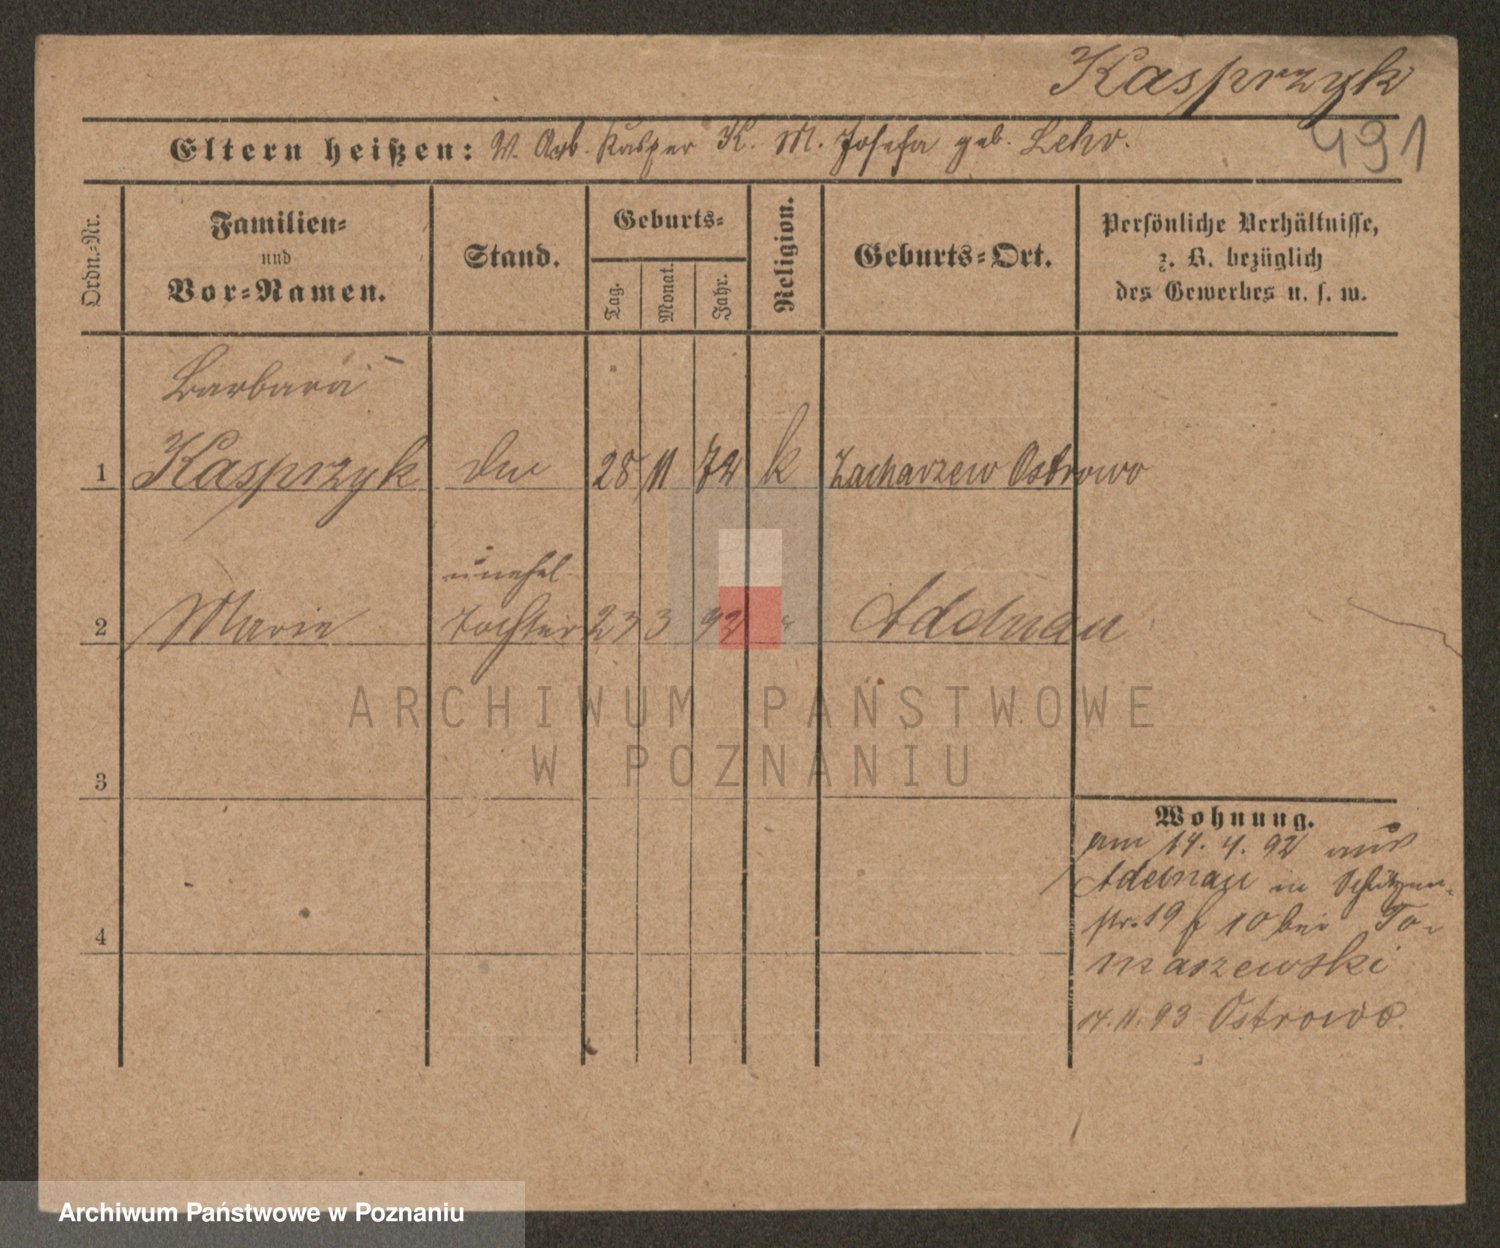 Kasprzyk
491
Eltern heißen: V. Arb. Kasper K. M. Josefa geb. Lehr.
Ordn.-Nr.
Familien-
und
Vor-Namen.
Stand.
Geburts-
Tag.
Monat.
Jahr.
Religion.
Geburts-Ort.
Persönliche Verhältnisse,
z. B. bezüglich
des Gewerbes u. s. w.
Barbara
1 Kasprzyk 28 11 72 k Zacharzew Ostrowo
unehel.
2 Marie Tochter 23 3 92 " Adelnau
3
4
Wohnung.
am 14. 4. 92 aus
Adelnau in Schützen-
str. 19 f 10 bei To-
maszewski
14. 11. 93 Ostrowo.
ARCHIWUM PAŃSTWOWE
W POZNANIU
Archiwum Państwowe w Poznaniu